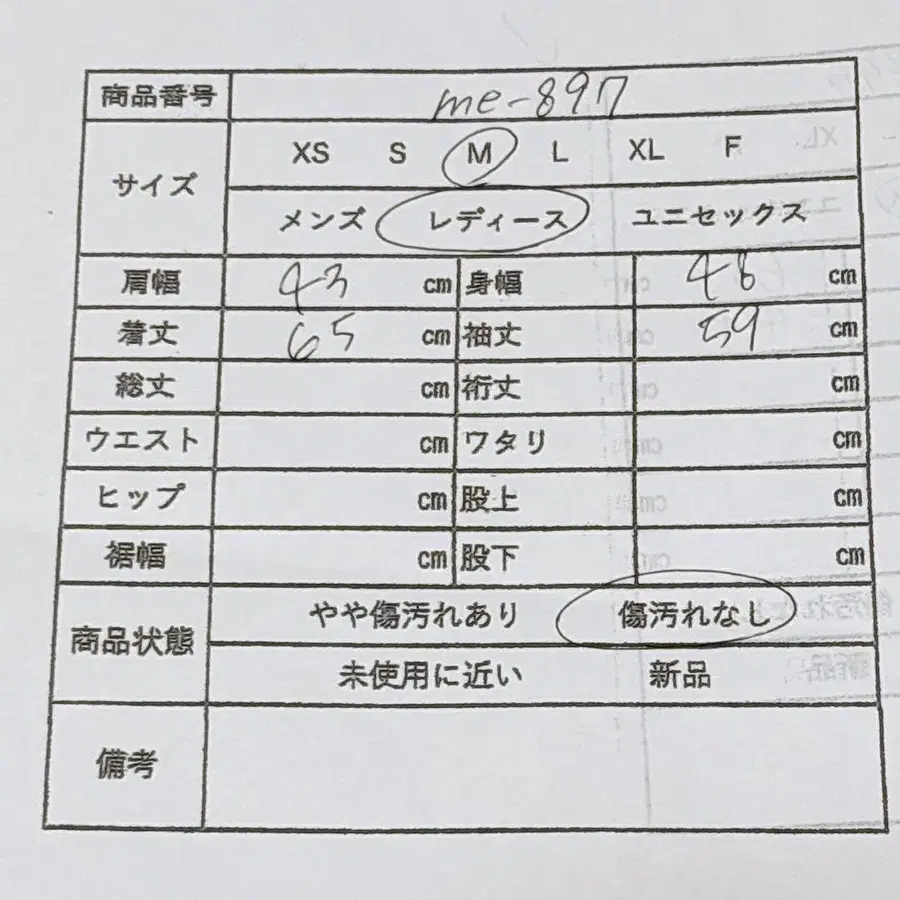 商品番号 me-897
サイズ XS S M L XL F
メンズ レディース ユニセックス
肩幅 43 cm 身幅 48 cm
着丈 65 cm 袖丈 59 cm
総丈 cm 裄丈 cm
ウエスト cm ワタリ cm
ヒップ cm 股上 cm
裾幅 cm 股下 cm
商品状態 やや傷汚れあり 傷汚れなし
未使用に近い 新品
備考